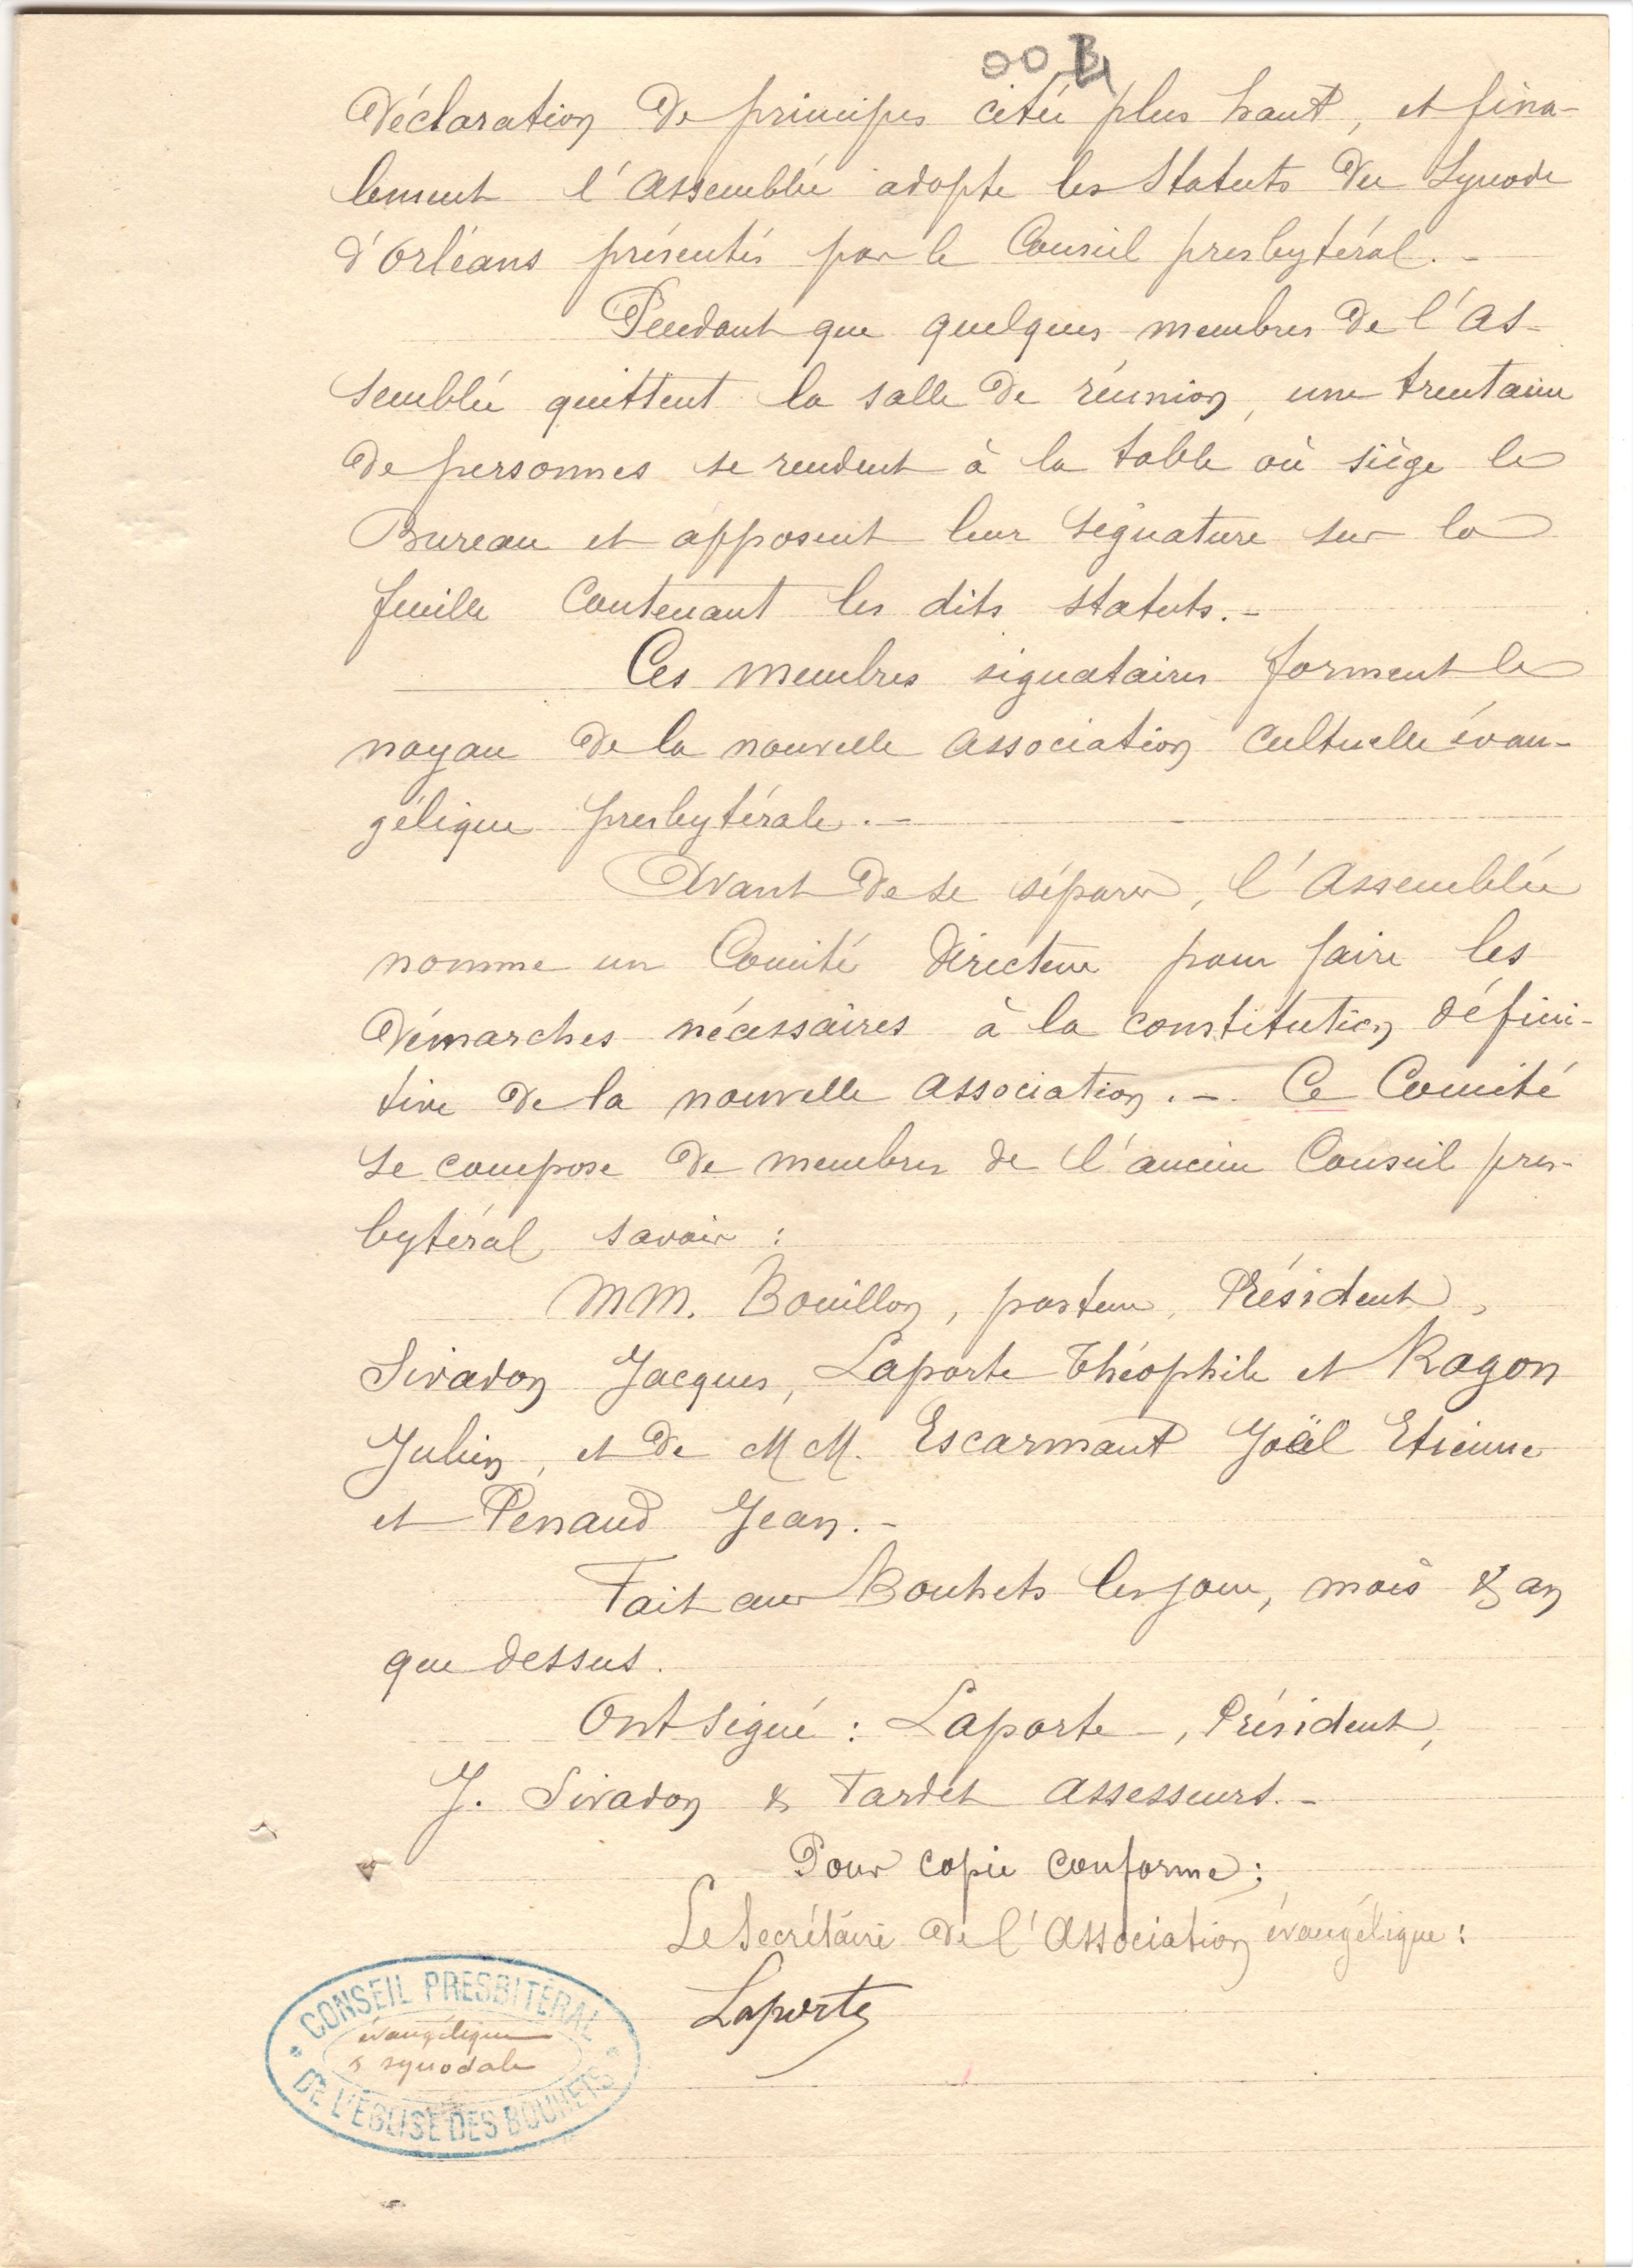 00 B
Déclaration de principes citée plus haut, et fina-
lement l'Assemblée adopte les Statuts du Synode
d'Orléans présentés par le Conseil presbytéral. -
Pendant que quelques membres de l'As-
semblée quittent la salle de réunion, une trentaine
de personnes se rendent à la table où siège le
Bureau et apposent leur signature sur la
feuille contenant les dits statuts. -
Ces membres signataires forment le
noyau de la nouvelle association cultuelle évan-
gélique presbytérale. -
Avant de se séparer, l'Assemblée
nomme un Comité directeur pour faire les
démarches nécessaires à la constitution défini-
tive de la nouvelle association. - Ce Comité
se compose de membres de l'ancien Conseil pres-
bytéral savoir :
MM. Bouillon, pasteur, Président,
Sivadon Jacques, Laporte Théophile et Ragon
Julien, et de MM. Escarmant Joël Etienne
et Penaud Jean. -
Fait aux Bouhets les jour, mois & an
que dessus.
Ont signé : Laporte -, Président,
J. Sivadon & Tardet assesseurs. -
Pour copie conforme ;
Le Secrétaire de l'Association évangélique :
Laporte
CONSEIL PRESBITÉRAL
évangélique
& synodale
DE L'ÉGLISE DES BOUHETS